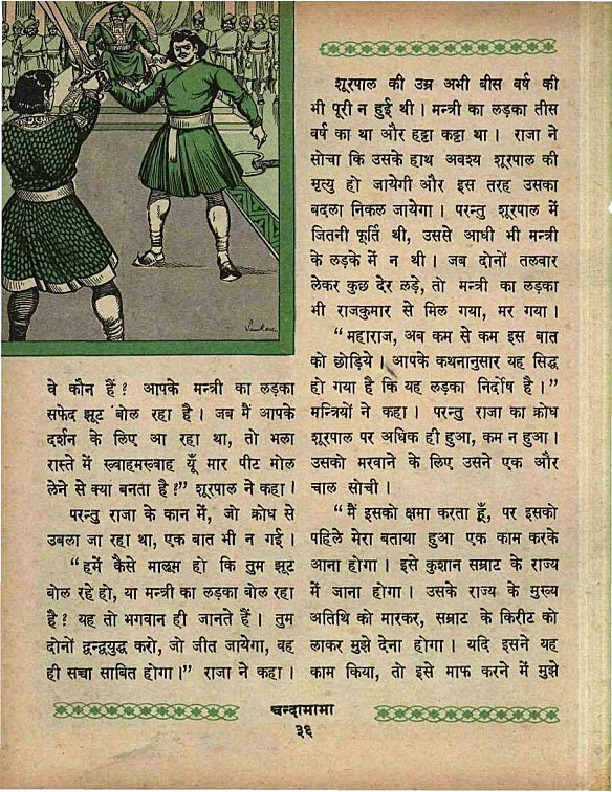 वे कौन हैं? आपके मन्त्री का लड़का
सफेद झूट बोल रहा है। जब मैं आपके
दर्शन के लिए आ रहा था, तो भला
रास्ते में ख्वाहमख्वाह यूँ मार पीट मोल
लेने से क्या बनता है?" शूरपाल ने कहा।
परन्तु राजा के कान में, जो क्रोध से
उबला जा रहा था, एक बात भी न गई।
"हमें कैसे मालूम हो कि तुम झूट
बोल रहे हो, या मन्त्री का लड़का बोल रहा
है? यह तो भगवान ही जानते हैं। तुम
दोनों द्वन्द्वयुद्ध करो, जो जीत जायेगा, वह
ही सच्चा साबित होगा।" राजा ने कहा।
शूरपाल की उम्र अभी बीस वर्ष की
भी पूरी न हुई थी। मन्त्री का लड़का तीस
वर्ष का था और हट्टा कट्टा था। राजा ने
सोचा कि उसके हाथ अवश्य शूरपाल की
मृत्यु हो जायेगी और इस तरह उसका
बदला निकल जायेगा। परन्तु शूरपाल में
जितनी फूर्ति थी, उससे आधी भी मन्त्री
के लड़के में न थी। जब दोनों तलवार
लेकर कुछ देर लड़े, तो मन्त्री का लड़का
भी राजकुमार से मिल गया, मर गया।
"महाराज, अब कम से कम इस बात
को छोड़िये। आपके कथनानुसार यह सिद्ध
हो गया है कि यह लड़का निर्दोष है।"
मन्त्रियों ने कहा। परन्तु राजा का क्रोध
शूरपाल पर अधिक ही हुआ, कम न हुआ।
उसको मरवाने के लिए उसने एक और
चाल सोची।
"मैं इसको क्षमा करता हूँ, पर इसको
पहिले मेरा बताया हुआ एक काम करके
आना होगा। इसे कुशान सम्राट के राज्य
में जाना होगा। उसके राज्य के मुख्य
अतिथि को मारकर, सम्राट के किरीट को
लाकर मुझे देना होगा। यदि इसने यह
काम किया, तो इसे माफ करने में मुझे
चन्दामामा
३६